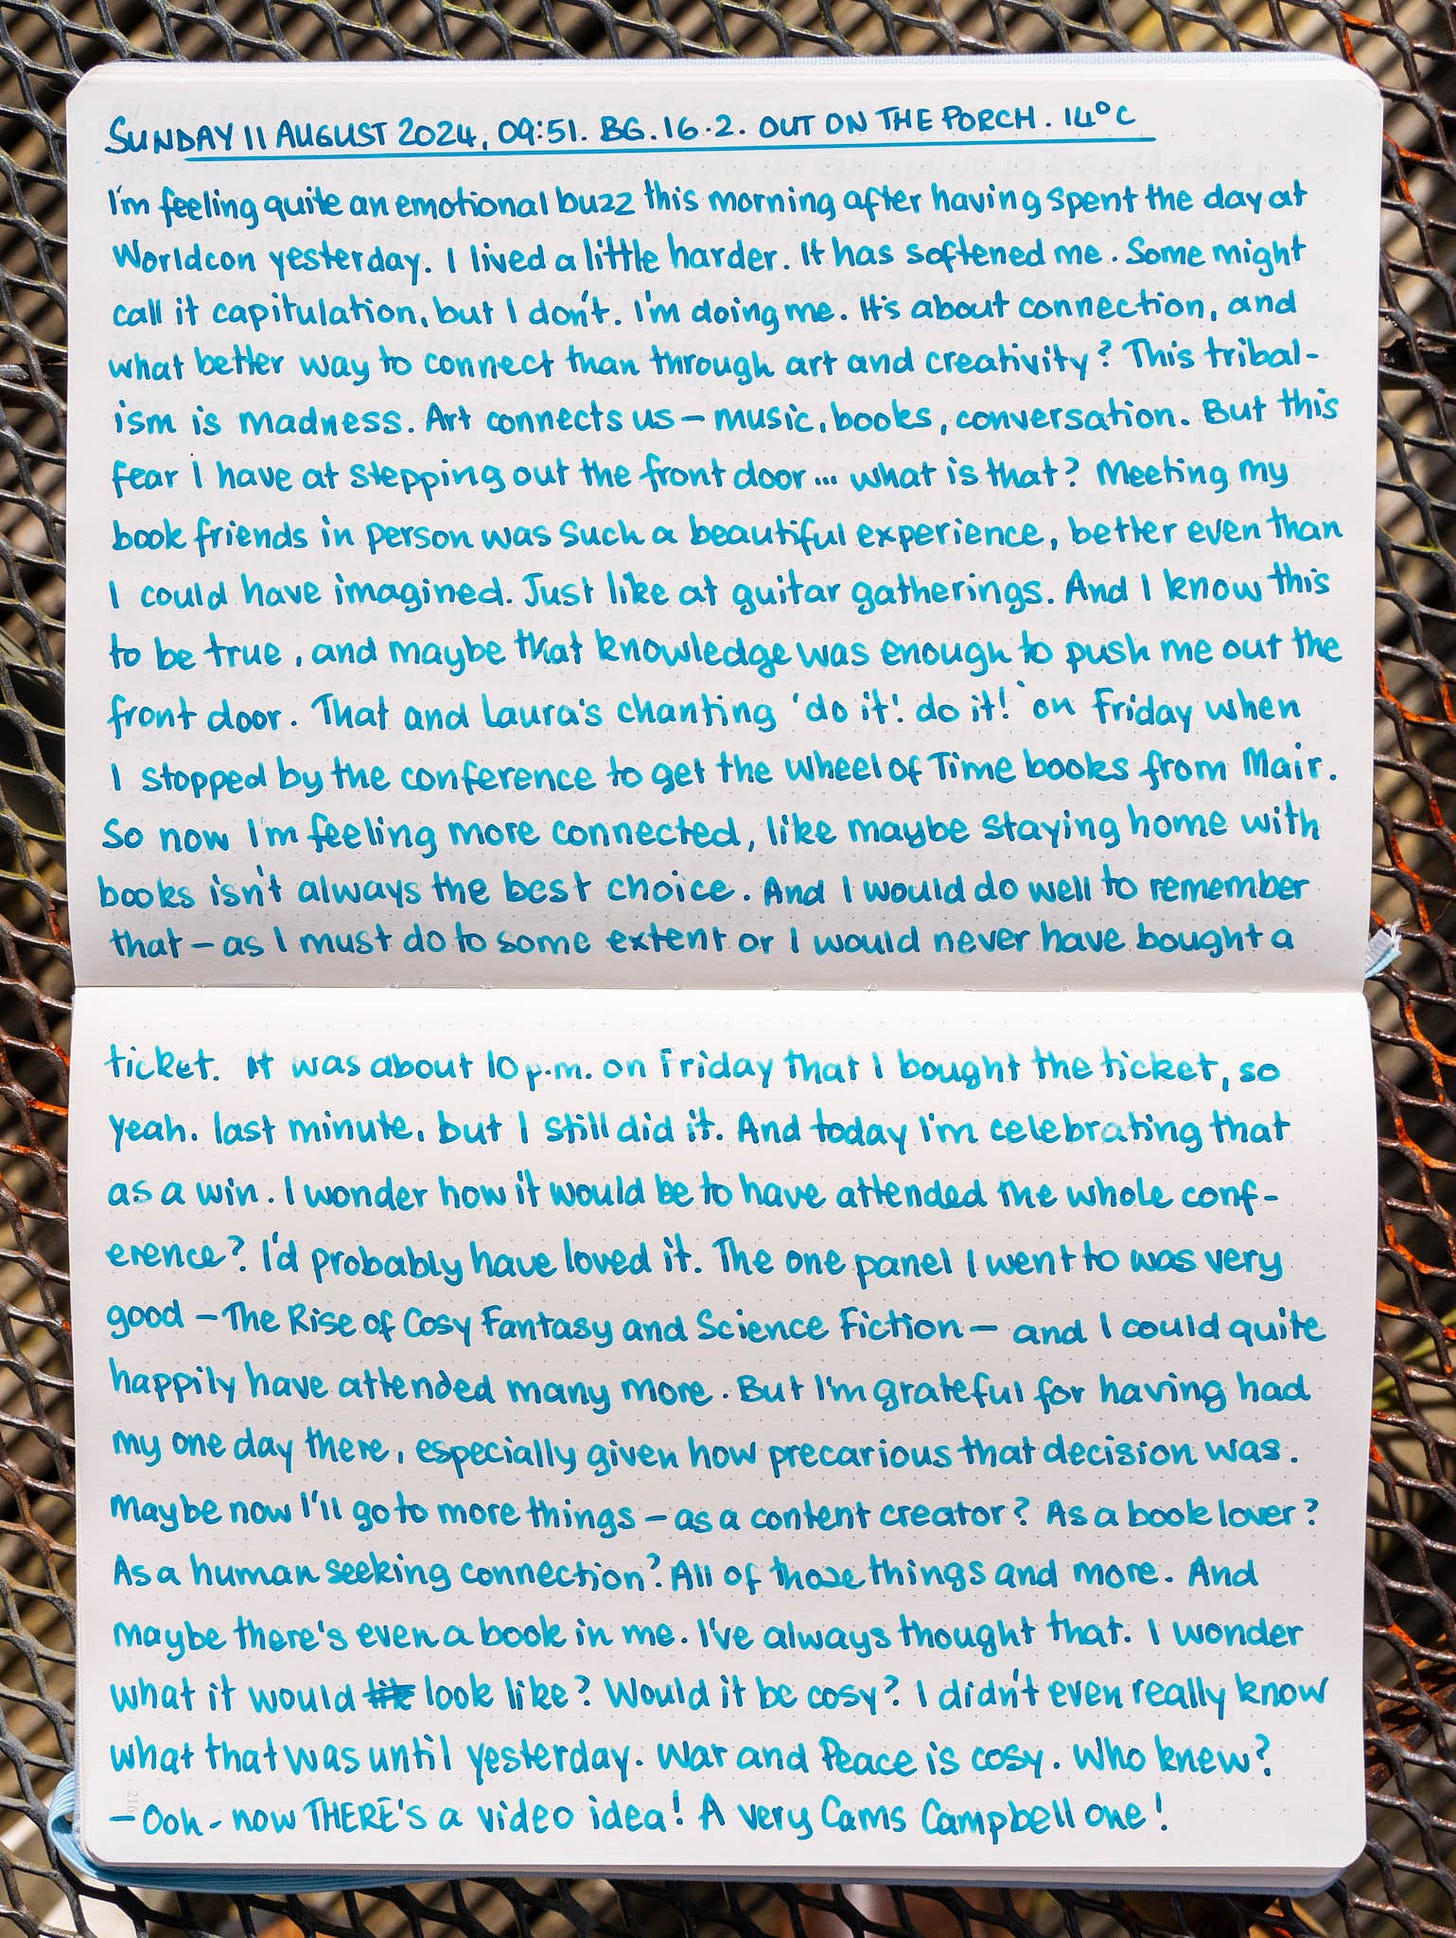 SUNDAY 11 AUGUST 2024, 09:51. BG. 16.2. OUT ON THE PORCH. 14°C
I'm feeling quite an emotional buzz this morning after having spent the day at
Worldcon yesterday. I lived a little harder. It has softened me. Some might
call it capitulation, but I don't. I'm doing me. It's about connection, and
what better way to connect than through art and creativity? This tribal-
ism is madness. Art connects us – music, books, conversation. But this
fear I have at stepping out the front door... what is that? Meeting my
book friends in person was such a beautiful experience, better even than
I could have imagined. Just like at guitar gatherings. And I know this
to be true, and maybe that knowledge was enough to push me out the
front door. That and Laura's chanting 'do it! do it!' on Friday when
I stopped by the conference to get the Wheel of Time books from Mair.
So now I'm feeling more connected, like maybe staying home with
books isn't always the best choice. And I would do well to remember
that – as I must do to some extent or I would never have bought a
ticket. It was about 10 p.m. on Friday that I bought the ticket, so
yeah. last minute, but I still did it. And today I'm celebrating that
as a win. I wonder how it would be to have attended the whole conf-
erence? I'd probably have loved it. The one panel I went to was very
good – The Rise of Cosy Fantasy and Science Fiction – and I could quite
happily have attended many more. But I'm grateful for having had
my one day there, especially given how precarious that decision was.
Maybe now I'll go to more things – as a content creator? As a book lover?
As a human seeking connection? All of those things and more. And
maybe there's even a book in me. I've always thought that. I wonder
what it would look like? Would it be cosy? I didn't even really know
what that was until yesterday. War and Peace is cosy. Who knew?
– Ooh – now THERE'S a video idea! A very Cams Campbell one!